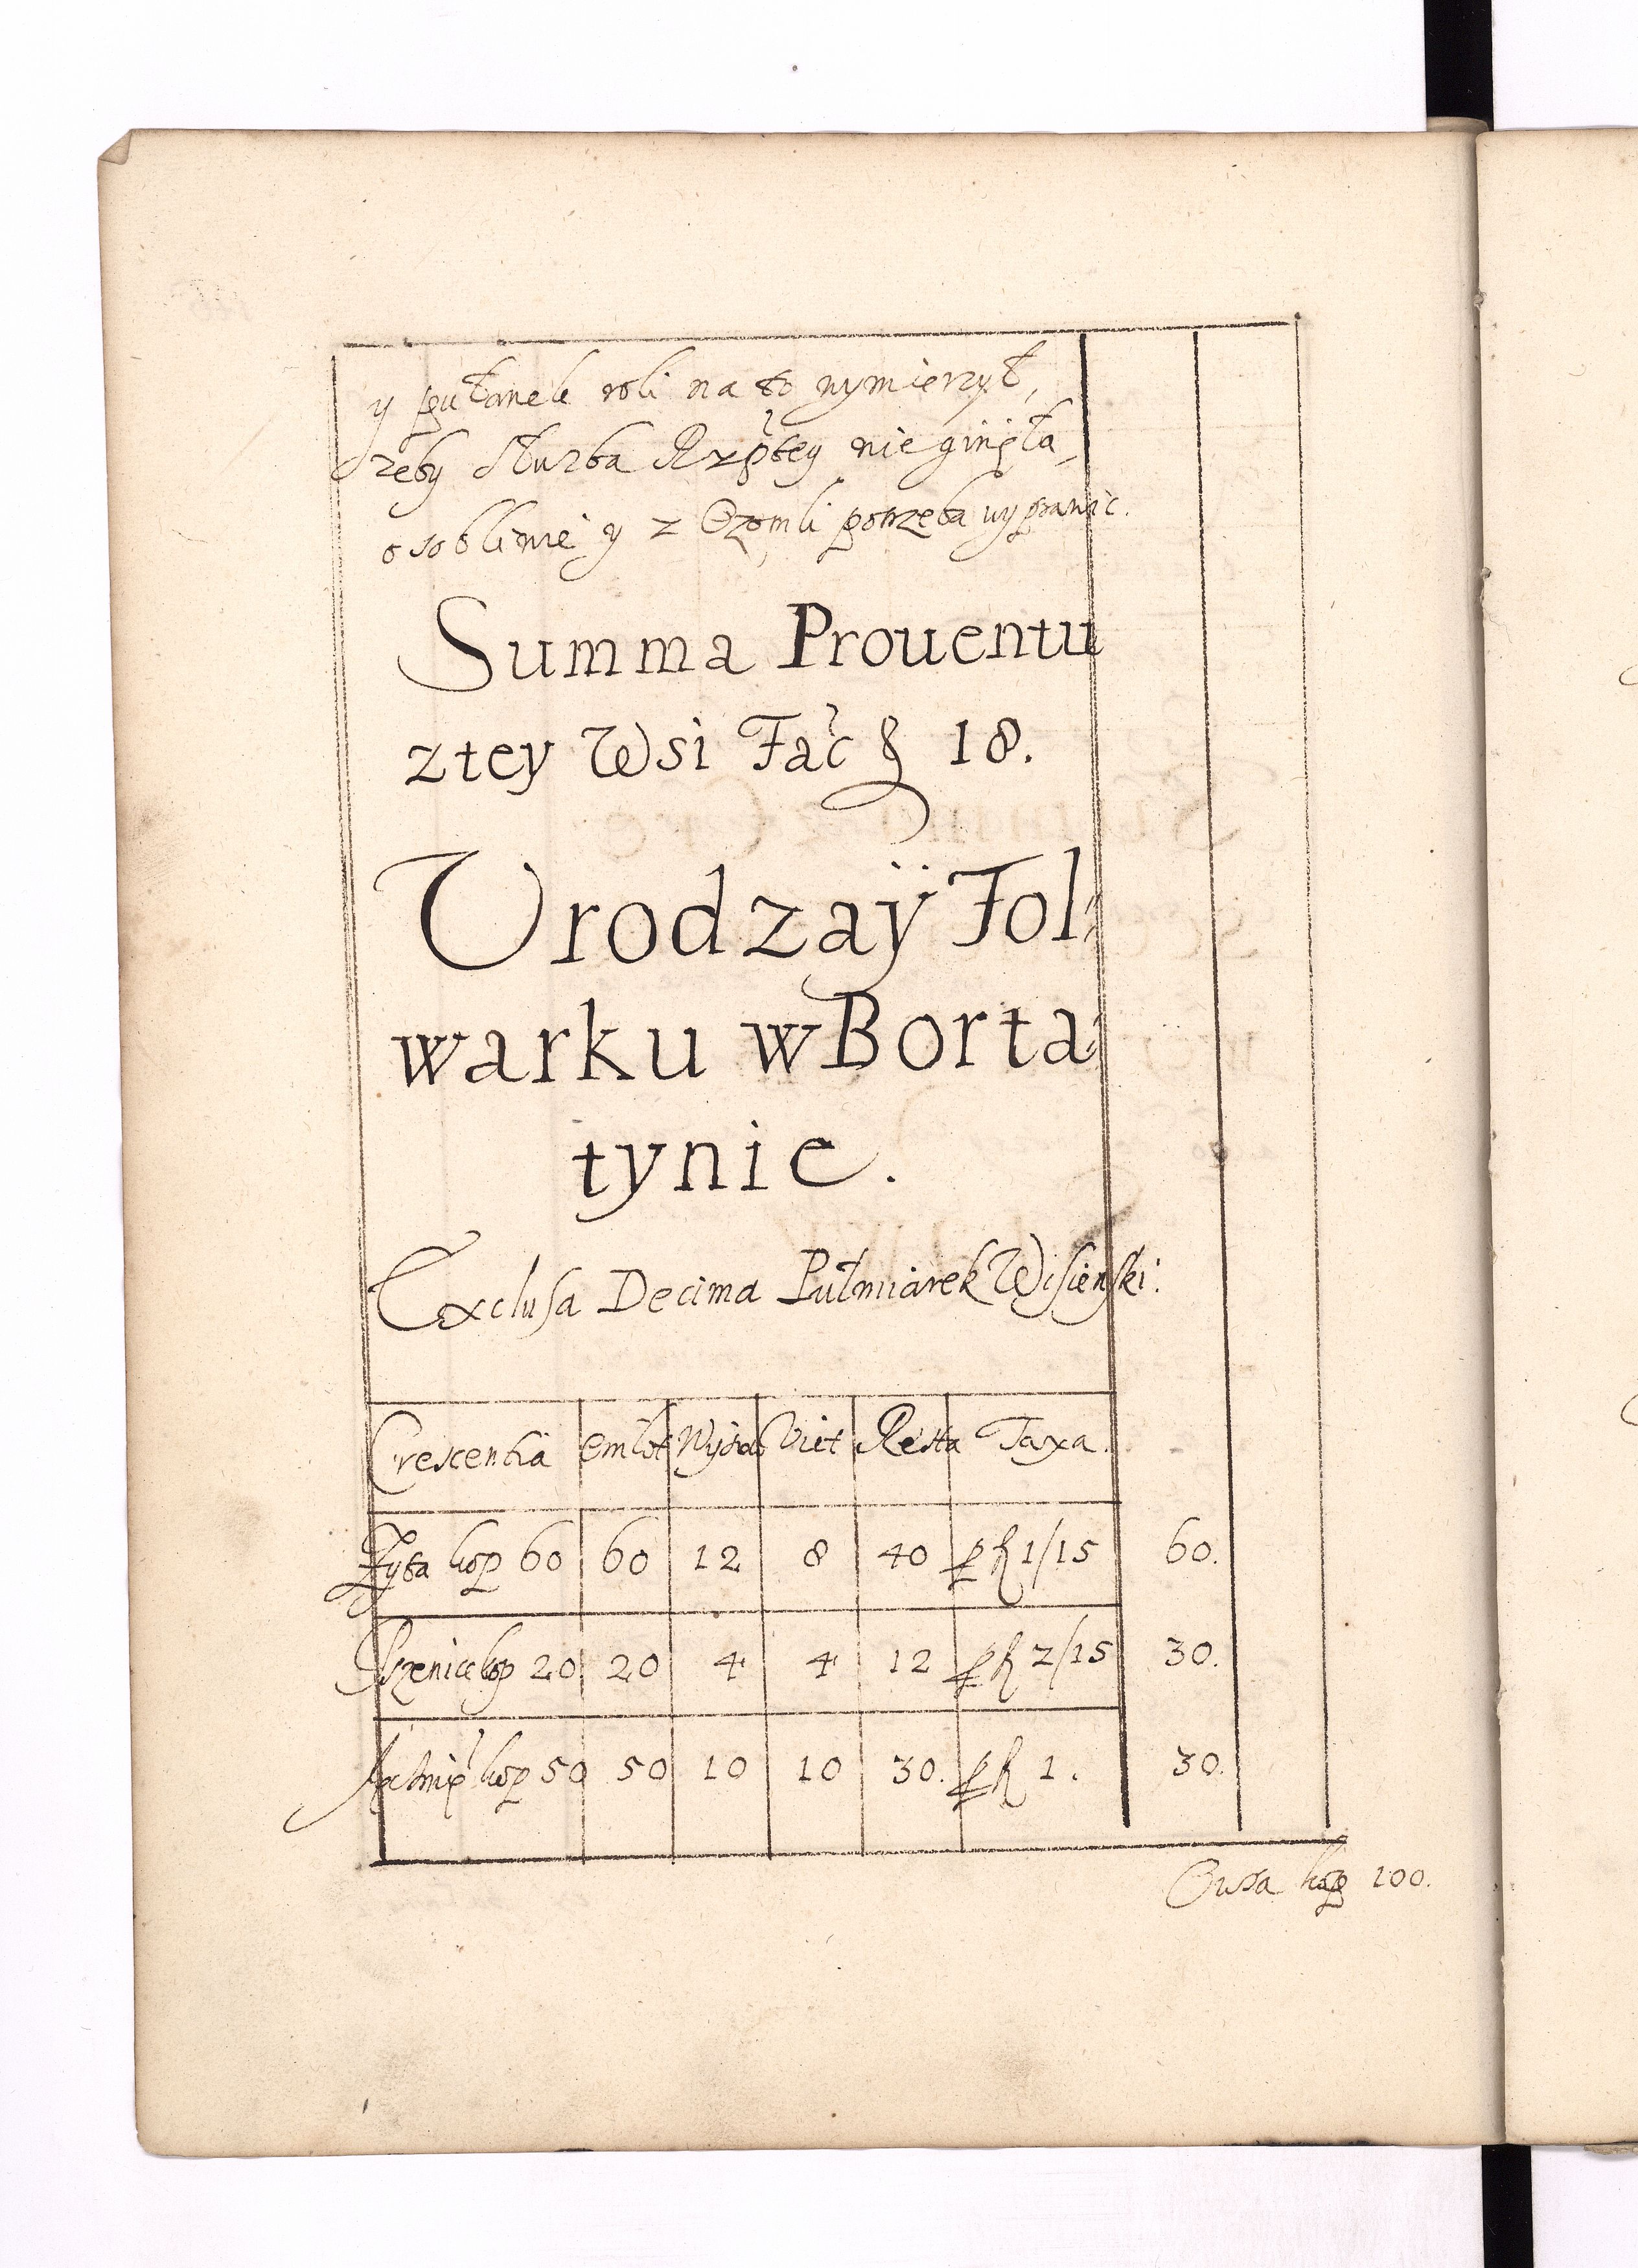 y pułanek roli na to wymierzył,
żeby służba Rzptey nie ginęła,
osobliwie y z Ozomli potrzeba wyprawić.
Summa Prouentu
z tey Wsi Fac f 18.
Urodzaÿ Fol:
warku w Borta:
tynie.
Exclusa Decima Pułmiarek Wiſienſki:
Crescentia Omłot Wysia Diet Resta Taxa.
Zyta kop 60 60 12 8 40 p f 1/15 60.
Pszenice kop 20 20 4 4 12 p f 2/15 30.
Jęchmię kop 50 50 10 10 30. p f 1. 30.
Owsa kop 100.